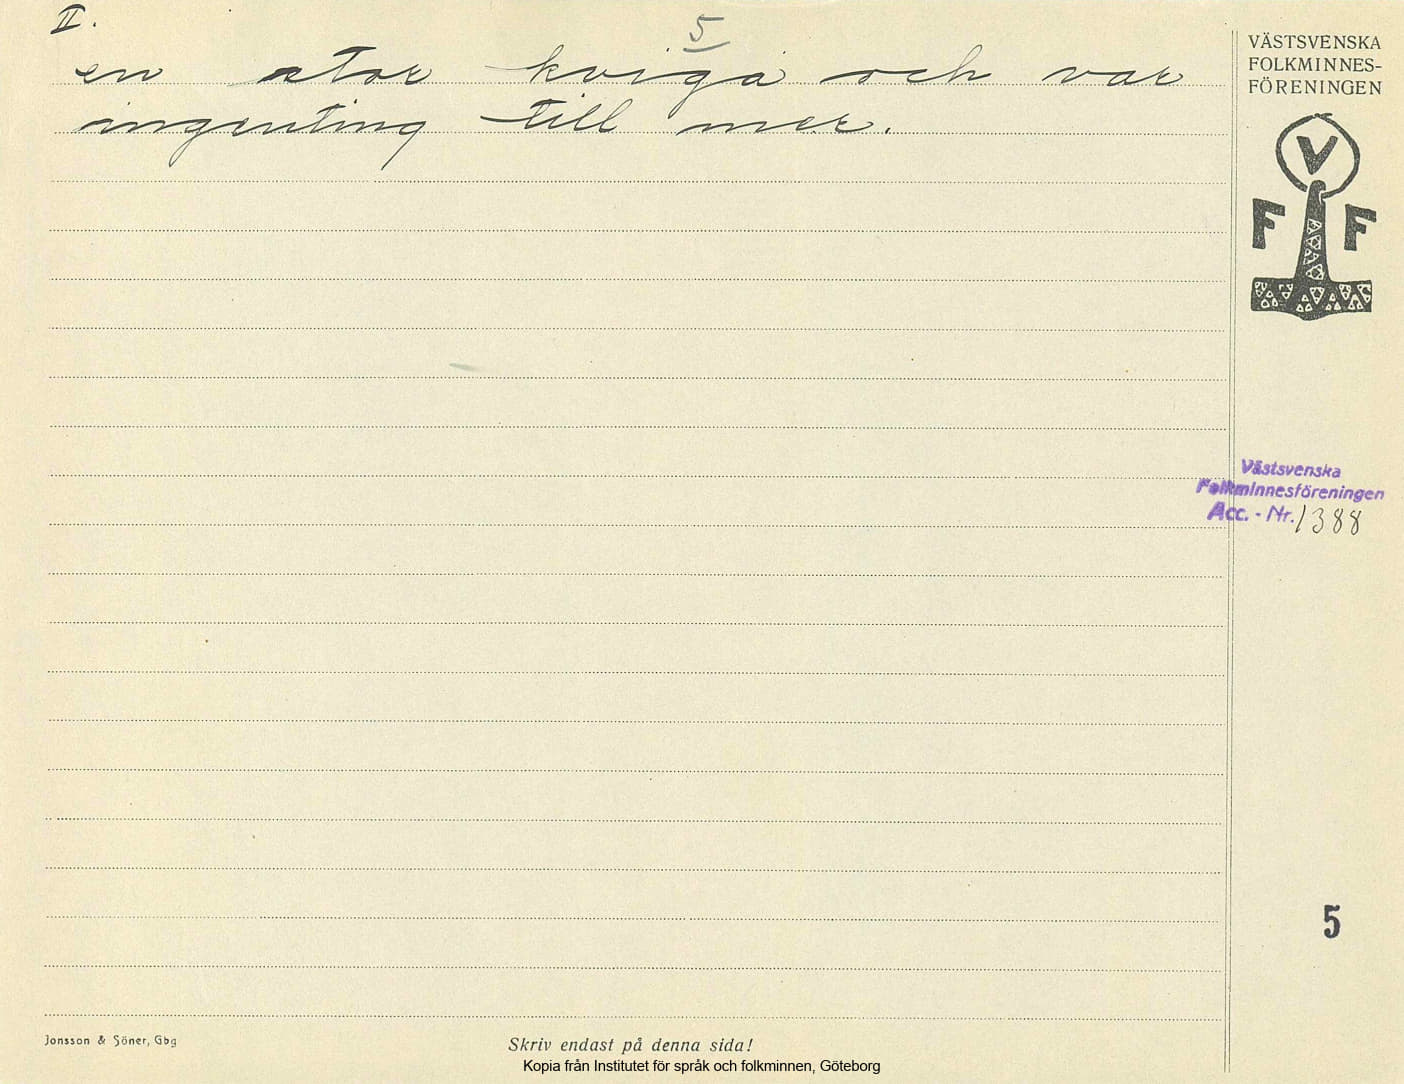 II.
5
en stor kviga och var
ingenting till mer.
VÄSTSVENSKA
FOLKMINNES-
FÖRENINGEN
V
F F
Västsvenska
Folkminnesföreningen
Acc. - Nr. 1388
5
Jonsson & Söner, Gbg
Skriv endast på denna sida!
Kopia från Institutet för språk och folkminnen, Göteborg